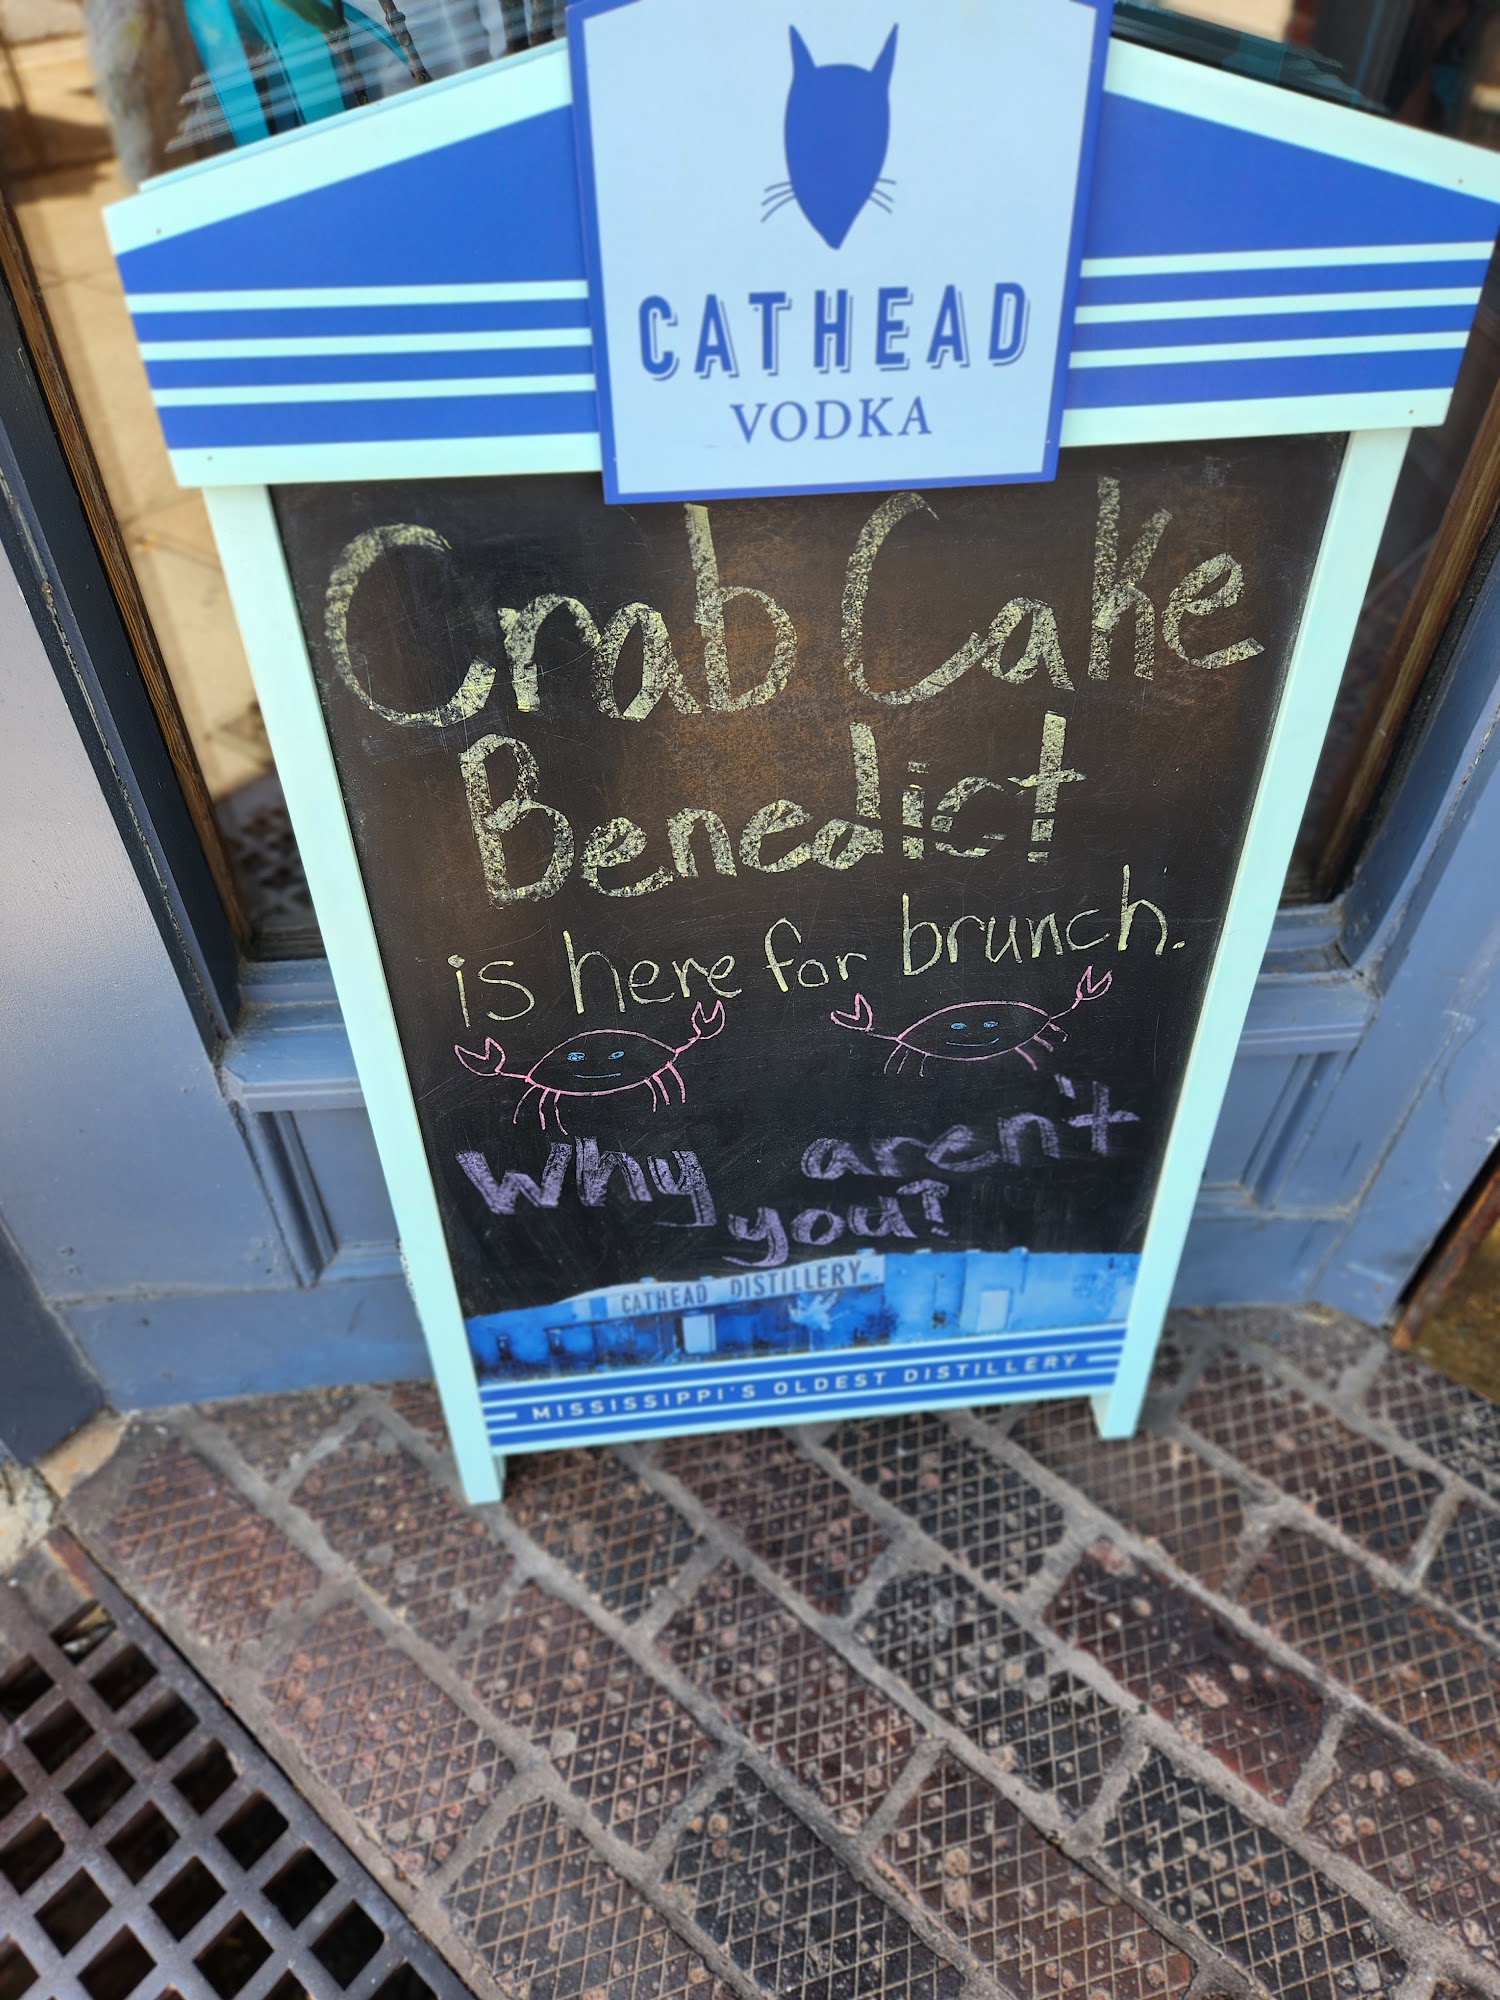 CATHEAD
VODKA
Crab Cake
Benedict
is here for brunch.
Why aren't
you?
CATHEAD DISTILLERY
MISSISSIPPI'S OLDEST DISTILLERY